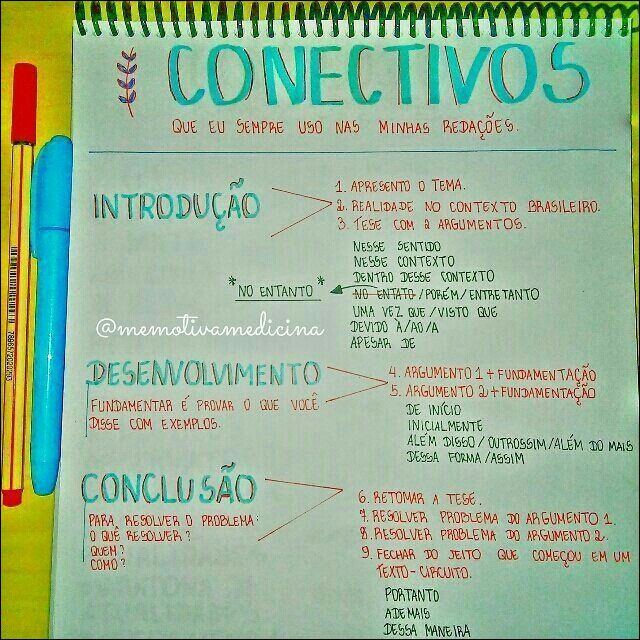 CONECTIVOS
QUE EU SEMPRE USO NAS MINHAS REDAÇÕES.
INTRODUÇÃO
1. APRESENTO O TEMA.
2. REALIDADE NO CONTEXTO BRASILEIRO.
3. TESE COM 2 ARGUMENTOS.
NESSE SENTIDO
NESSE CONTEXTO
DENTRO DESSE CONTEXTO
*NO ENTANTO*
NO ENTATO/PORÉM/ENTRETANTO
UMA VEZ QUE/VISTO QUE
DEVIDO À/AO/A
APESAR DE
@memotivamedicina
DESENVOLVIMENTO
FUNDAMENTAR É PROVAR O QUE VOCÊ
DISSE COM EXEMPLOS.
4. ARGUMENTO 1 + FUNDAMENTAÇÃO
5. ARGUMENTO 2 + FUNDAMENTAÇÃO
DE INÍCIO
INICIALMENTE
ALÉM DISSO/OUTROSSIM/ALÉM DO MAIS
DESSA FORMA/ASSIM
CONCLUSÃO
PARA RESOLVER O PROBLEMA:
O QUÊ RESOLVER?
QUEM?
COMO?
6. RETOMAR A TESE.
7. RESOLVER PROBLEMA DO ARGUMENTO 1.
8. RESOLVER PROBLEMA DO ARGUMENTO 2.
9. FECHAR DO JEITO QUE COMEÇOU EM UM
TEXTO-CIRCUITO.
PORTANTO
ADEMAIS
DESSA MANEIRA